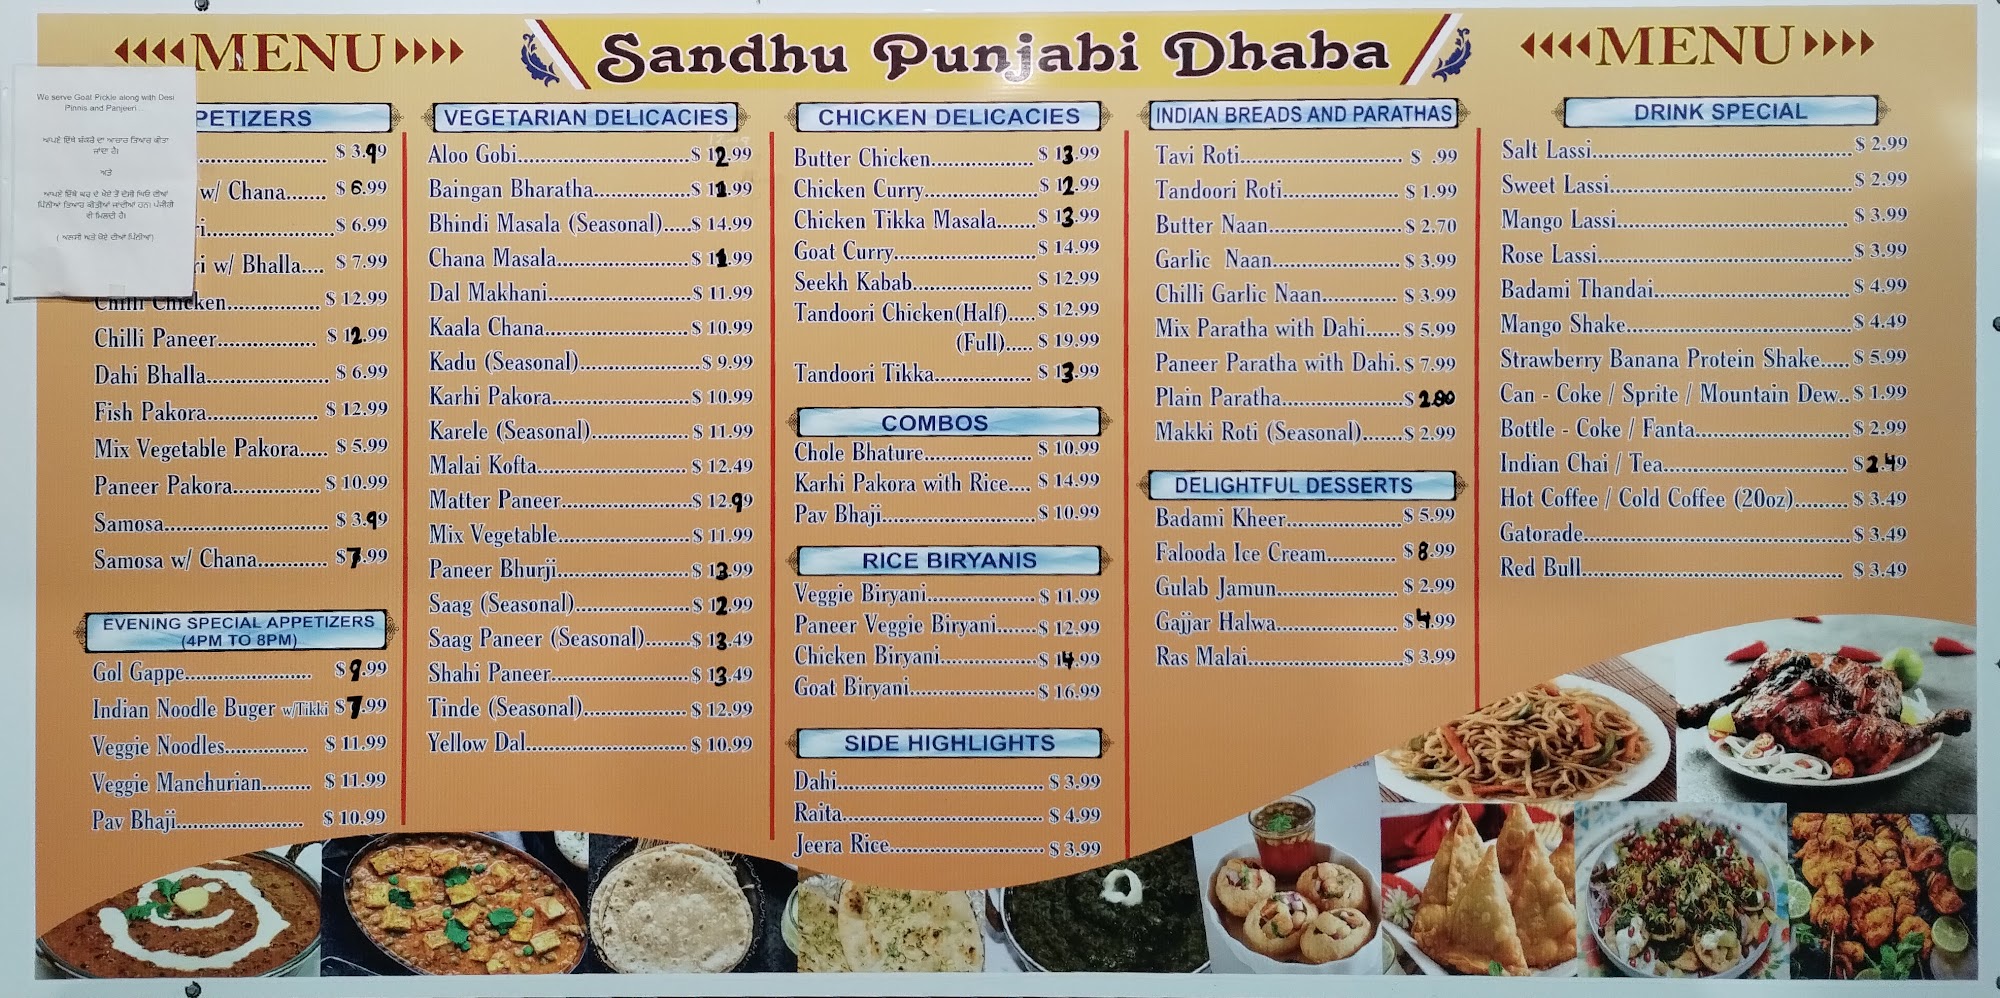 MENU
Sandhu Punjabi Dhaba
MENU
We serve Goat Pickle along with Desi
Pinnis and Panjeeri
ਆਪਣੇ ਇੱਥੇ ਬੱਕਰੇ ਦਾ ਆਚਾਰ ਤਿਆਰ ਕੀਤਾ
ਜਾਂਦਾ ਹੈ।
ਅਤੇ
ਆਪਣੇ ਇੱਥੇ ਘਰ ਦੇ ਖੋਏ ਤੋਂ ਦੇਸੀ ਘਿਓ ਦੀਆਂ
ਪਿੰਨੀਆਂ ਤਿਆਰ ਕੀਤੀਆਂ ਜਾਂਦੀਆਂ ਹਨ। ਪੰਜੀਰੀ
ਵੀ ਮਿਲਦੀ ਹੈ।
( ਅਲਸੀ ਅਤੇ ਖੋਏ ਦੀਆਂ ਪਿੰਨੀਆਂ)
PETIZERS
$ 3.99
w/ Chana....... $ 6.99
ri.................... $ 6.99
ri w/ Bhalla.... $ 7.99
Chilli Chicken.................. $ 12.99
Chilli Paneer................. $ 12.99
Dahi Bhalla..................... $ 6.99
Fish Pakora................... $ 12.99
Mix Vegetable Pakora..... $ 5.99
Paneer Pakora............... $ 10.99
Samosa............................ $ 3.99
Samosa w/ Chana............ $7.99
EVENING SPECIAL APPETIZERS
(4PM TO 8PM)
Gol Gappe...................... $ 9.99
Indian Noodle Buger w/Tikki $7.99
Veggie Noodles.............. $ 11.99
Veggie Manchurian......... $ 11.99
Pav Bhaji...................... $ 10.99
VEGETARIAN DELICACIES
Aloo Gobi.............................$ 12.99
Baingan Bharatha.................$ 11.99
Bhindi Masala (Seasonal).....$ 14.99
Chana Masala.......................$ 11.99
Dal Makhani........................$ 11.99
Kaala Chana........................$ 10.99
Kadu (Seasonal)....................$ 9.99
Karhi Pakora.......................$ 10.99
Karele (Seasonal)................. $ 11.99
Malai Kofta.......................... $ 12.49
Matter Paneer......................$ 12.99
Mix Vegetable.......................$ 11.99
Paneer Bhurji.......................$ 13.99
Saag (Seasonal)....................$ 12.99
Saag Paneer (Seasonal)........$ 13.49
Shahi Paneer........................$ 13.49
Tinde (Seasonal).................. $ 12.99
Yellow Dal............................ $ 10.99
CHICKEN DELICACIES
Butter Chicken...................$ 13.99
Chicken Curry....................$ 12.99
Chicken Tikka Masala.......$ 13.99
Goat Curry.........................$ 14.99
Seekh Kabab..................... $ 12.99
Tandoori Chicken(Half).....$ 12.99
(Full)..... $ 19.99
Tandoori Tikka................. $ 13.99
COMBOS
Chole Bhature................... $ 10.99
Karhi Pakora with Rice.... $ 14.99
Pav Bhaji...........................$ 10.99
RICE BIRYANIS
Veggie Biryani...................$ 11.99
Paneer Veggie Biryani.......$ 12.99
Chicken Biryani.................$ 14.99
Goat Biryani......................$ 16.99
SIDE HIGHLIGHTS
Dahi.................................... $ 3.99
Raita................................... $ 4.99
Jeera Rice.......................... $ 3.99
INDIAN BREADS AND PARATHAS
Tavi Roti............................ $ .99
Tandoori Roti.................... $ 1.99
Butter Naan.......................$ 2.70
Garlic Naan......................$ 3.99
Chilli Garlic Naan............. $ 3.99
Mix Paratha with Dahi......$ 5.99
Paneer Paratha with Dahi.$ 7.99
Plain Paratha.....................$ 2.80
Makki Roti (Seasonal).......$ 2.99
DELIGHTFUL DESSERTS
Badami Kheer....................$ 5.99
Falooda Ice Cream............ $ 8.99
Gulab Jamun..................... $ 2.99
Gajjar Halwa..................... $4.99
Ras Malai...........................$ 3.99
DRINK SPECIAL
Salt Lassi.............................................$ 2.99
Sweet Lassi..........................................$ 2.99
Mango Lassi........................................ $ 3.99
Rose Lassi............................................$ 3.99
Badami Thandai..................................$ 4.99
Mango Shake.......................................$ 4.49
Strawberry Banana Protein Shake.....$ 5.99
Can - Coke / Sprite / Mountain Dew..$ 1.99
Bottle - Coke / Fanta...........................$ 2.99
Indian Chai / Tea................................ $2.49
Hot Coffee / Cold Coffee (20oz)......... $ 3.49
Gatorade..............................................$ 3.49
Red Bull............................................. $ 3.49